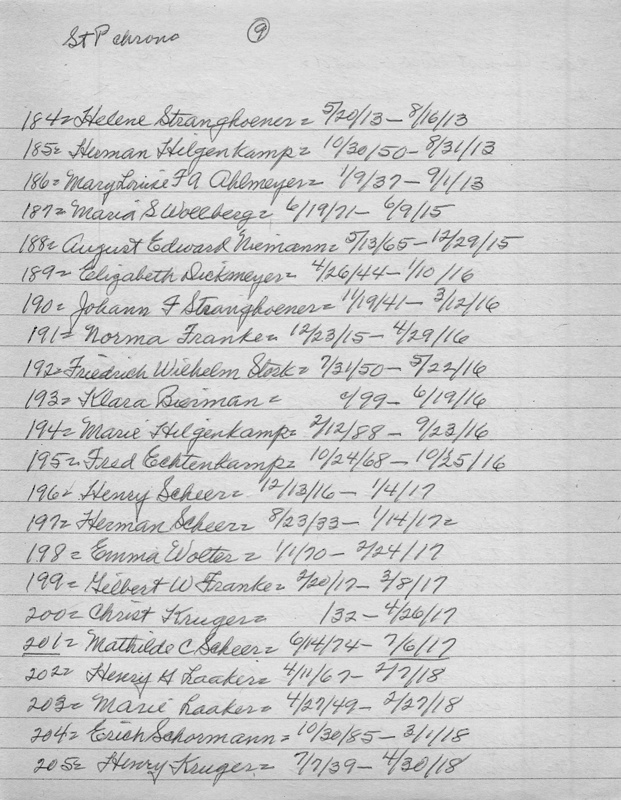 St P chrono 9
184= Helene Stranghoener= 5/20/13 - 8/16/13
185= Herman Hilgenkamp= 10/30/50 - 8/31/13
186= Mary Louise F A Ahlmeyer= 1/9/37 - 9/1/13
187= Maria S Wollberg= 6/19/71 - 6/9/15
188= August Edward Niemann= 5/13/65 - 12/29/15
189= Elizabeth Dickmeyer= 4/26/44 - 1/10/16
190= Johann F Stranghoener= 11/19/41 - 3/12/16
191= Norma Franke= 12/23/15 - 4/29/16
192= Friedrich Wilhelm Stork= 7/31/50 - 5/22/16
193= Klara Bierman= /99 - 6/19/16
194= Marie Hilgenkamp= 2/12/88 - 9/23/16
195= Fred Echtenkamp= 10/24/68 - 10/25/16
196= Henry Scheer= 12/13/16 - 1/4/17
197= Herman Scheer= 8/23/33 - 1/14/17=
198= Emma Wolter= 1/1/70 - 2/24/17
199= Gilbert W Franke= 2/20/17 - 3/8/17
200= Christ Kruger= /32 - 4/26/17
201= Mathilde C Scheer= 6/14/74 - 7/6/17
202= Henry H Laaker= 4/11/67 - 2/7/18
203= Marie Laaker= 4/27/49 - 2/27/18
204= Erich Schormann= 10/30/85 - 3/1/18
205= Henry Kruger= 7/7/39 - 4/30/18